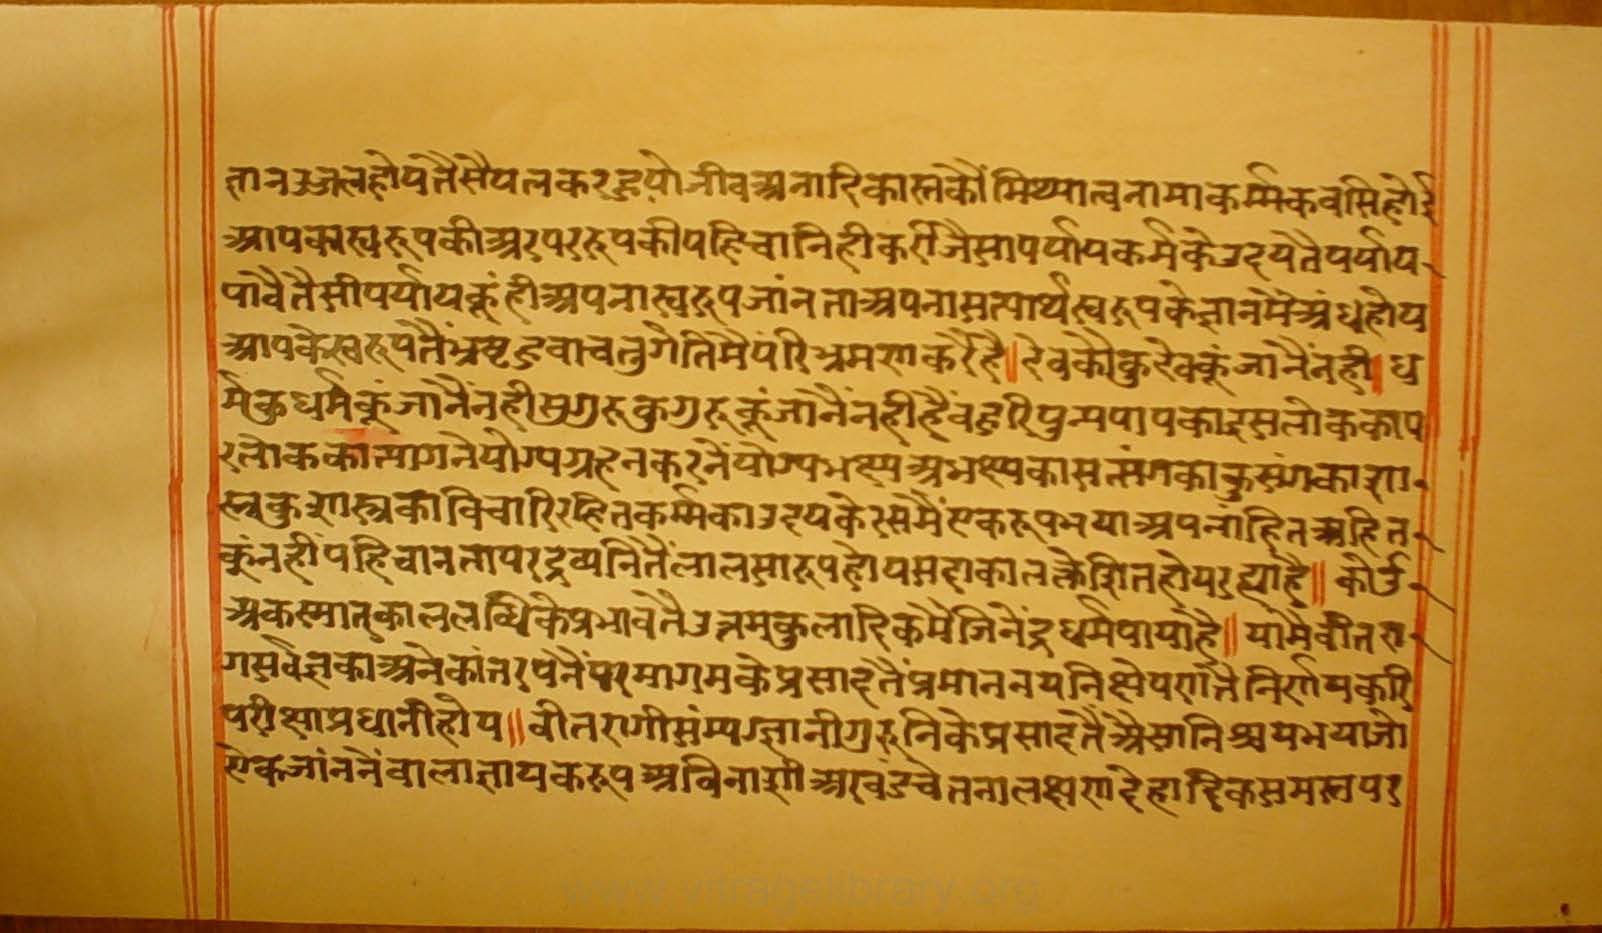 ज्ञान उजल होय तैसै पलकर हुयो जीव अनादि कास्तकौं मिथ्यात्वनामा कर्म्मक वसि होई
आपका स्वरूपकी अर पररूपकी पहिचानि ही करी जैसा पर्याय कर्मके उदयतै पर्याय
पावै तैसी पर्यायकूं ही अपना स्वरूप जांनता अपना सत्यार्थ स्वरूपके ज्ञानमै अंध होय
आपके स्वरूपतैं भ्रष्ट हुवा चतुर्गतिमै परिभ्रमण करै है॥ देवकौ कुदेवकूं जानैं नही॥ ध
र्म कुधर्मकूं जानैं नही सुगुरु कुगुरुकूं जानैं नही है बहुरि पुन्य पापका इस लोकका प
रलोकका त्यागनै योग्य ग्रहन करनें योग्य भक्ष्य अभक्ष्यका सत्संगका कुसंगका शा
स्त्र कुशास्त्रका विचार रहित कर्म्मका उदयके रसमैं एकरूप भया अपनां हित अहित
कूं नहीं पहिचानता परद्रव्यनितैं लालसारूप होय सदाकाल क्लेशित होय रह्या है॥ कोई
अकस्मात् काललब्धिके प्रभावतै उत्तम कुलादिकमै जिनेंद्र धर्म पाया है॥ यामै वीतरा
ग सर्वज्ञका अनेकांतरूपनैं परमागमके प्रसादतैं प्रमान नय निक्षेपणातै निर्णय करि
परीक्षा प्रधानी होय॥ वीतरागी संम्यग्ज्ञानी गुरुनिके प्रसादतैं अैसा निश्चय भया जो
एक जांननैंवाला ज्ञायकरूप अविनाशी अखंड चेतना लक्षण देहादिक समस्त पर
www.vitragelibrary.org